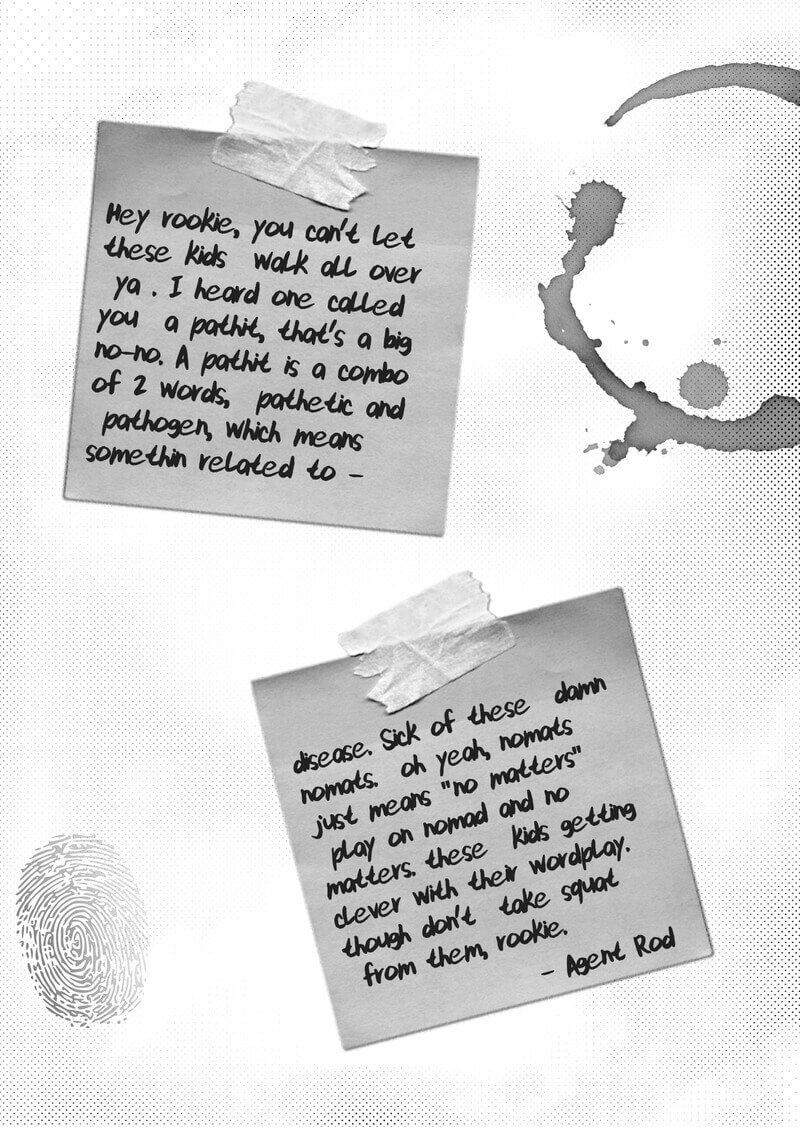 Hey rookie, you can't let
these kids walk all over
ya. I heard one called
you a pathit, that's a big
no-no. A pathit is a combo
of 2 words, pathetic and
pathogen, which means
somethin related to -
disease. Sick of these damn
nomats. oh yeah, nomats
just means "no matters"
play on nomad and no
matters. these kids getting
clever with their wordplay.
though don't take squat
from them, rookie.
- Agent Rod